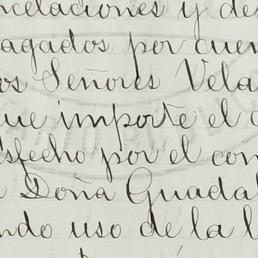 ncelaciones y de
agados por cuen
os Señores Vela
que importe el c
sfecho por el con
Doña Guadal
ndo uso de la l